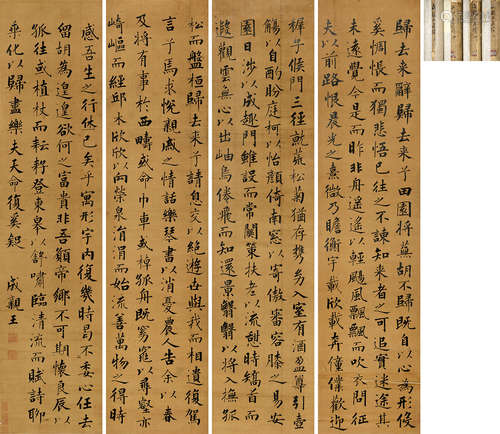 歸去来辭歸去来兮田園將蕪胡不歸既自以心為形役
奚惆悵而獨悲悟已往之不諫知来者之可追實迷途其
未遠覺今是而昨非舟遙遙以輕颺風飄飄而吹衣問征
夫以前路恨晨光之熹微乃瞻衡宇載欣載奔僮僕歡迎
穉子候門三徑就荒松菊猶存攜幼入室有酒盈尊引壺
觴以自酌眄庭柯以怡顏倚南窗以寄傲審容膝之易安
園日涉以成趣門雖設而常關策扶老以流憩時矯首而
遐觀雲無心以出岫鳥倦飛而知還景翳翳以將入撫孤
松而盤桓歸去来兮請息交以絕遊世與我而相遺復駕
言兮焉求悅親戚之情話樂琴書以消憂農人告余以春
及將有事於西疇或命巾車或棹孤舟既窈窕以尋壑亦
崎嶇而經邱木欣欣以向榮泉涓涓而始流善萬物之得時
感吾生之行休已矣乎寓形宇內復幾時曷不委心任去
留胡為遑遑欲何之富貴非吾願帝鄉不可期懷良辰以
孤往或植杖而耘耔登東皋以舒嘯臨清流而賦詩聊
乘化以歸盡樂夫天命復奚疑 成親王